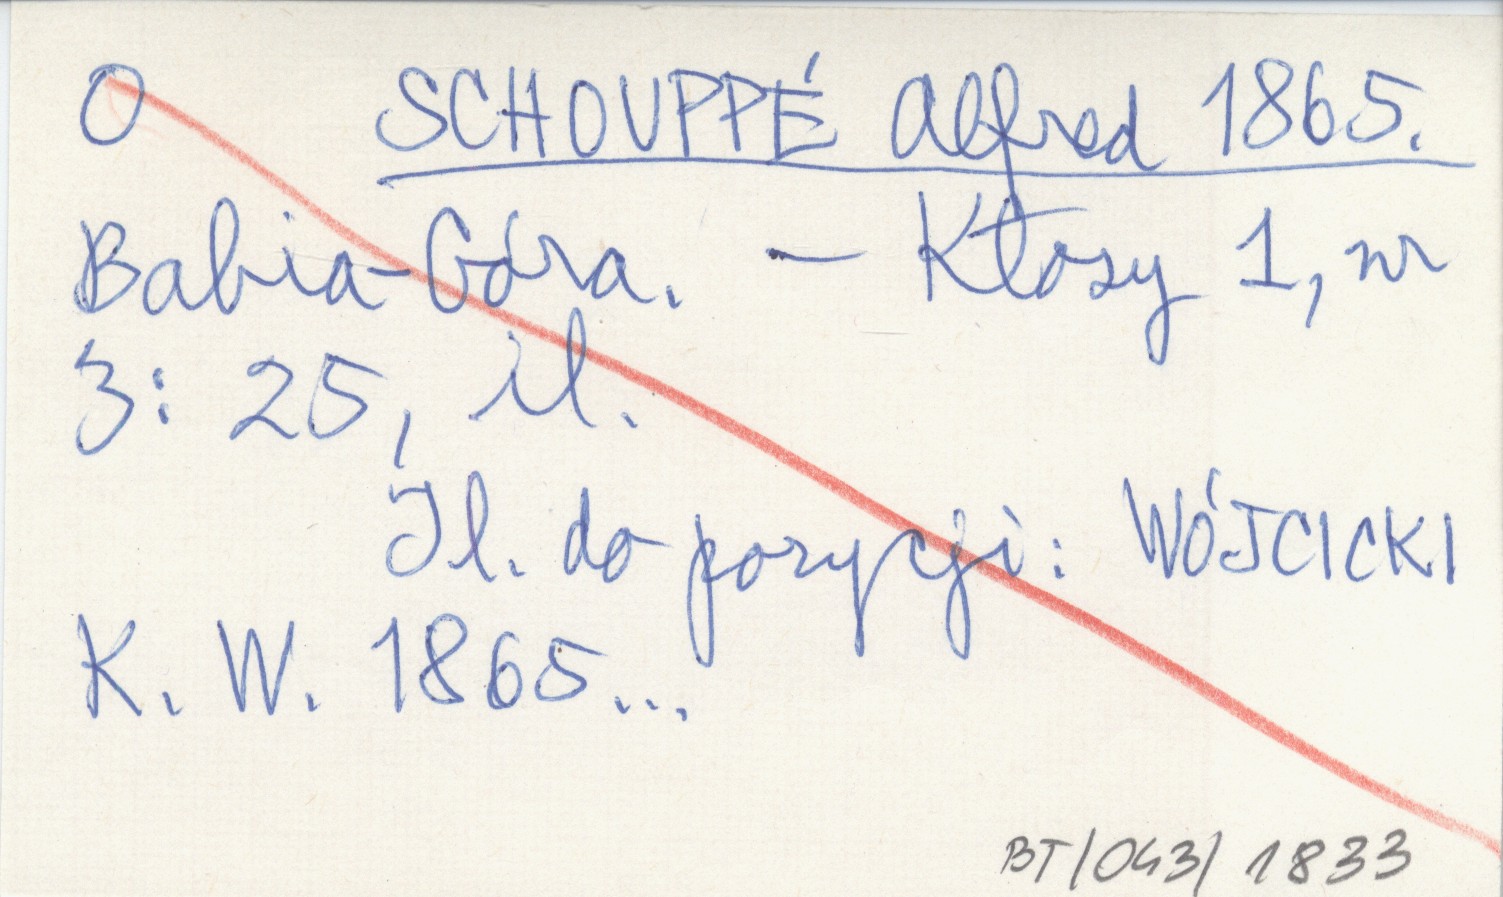 O SCHOUPPÉ Alfred 1865.
Babia-Góra. – Kłosy 1, nr
3: 25, il.
Il. do pozycji: WÓJCICKI
K. W. 1865...
BT/043/1833